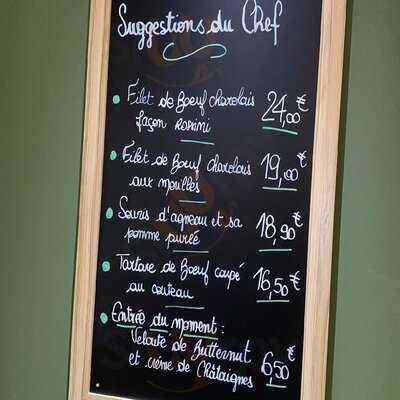 Suggestions du Chef
Filet de Boeuf charolais 24,00€
façon Rossini
Filet de Boeuf Charolais 19,00€
aux morilles
Souris d'agneau et sa 18,90€
pomme purée
Tartare de Boeuf coupé 16,50€
au couteau
Entrée du moment :
Velouté de Butternut
et crème de Châtaignes 6,50€